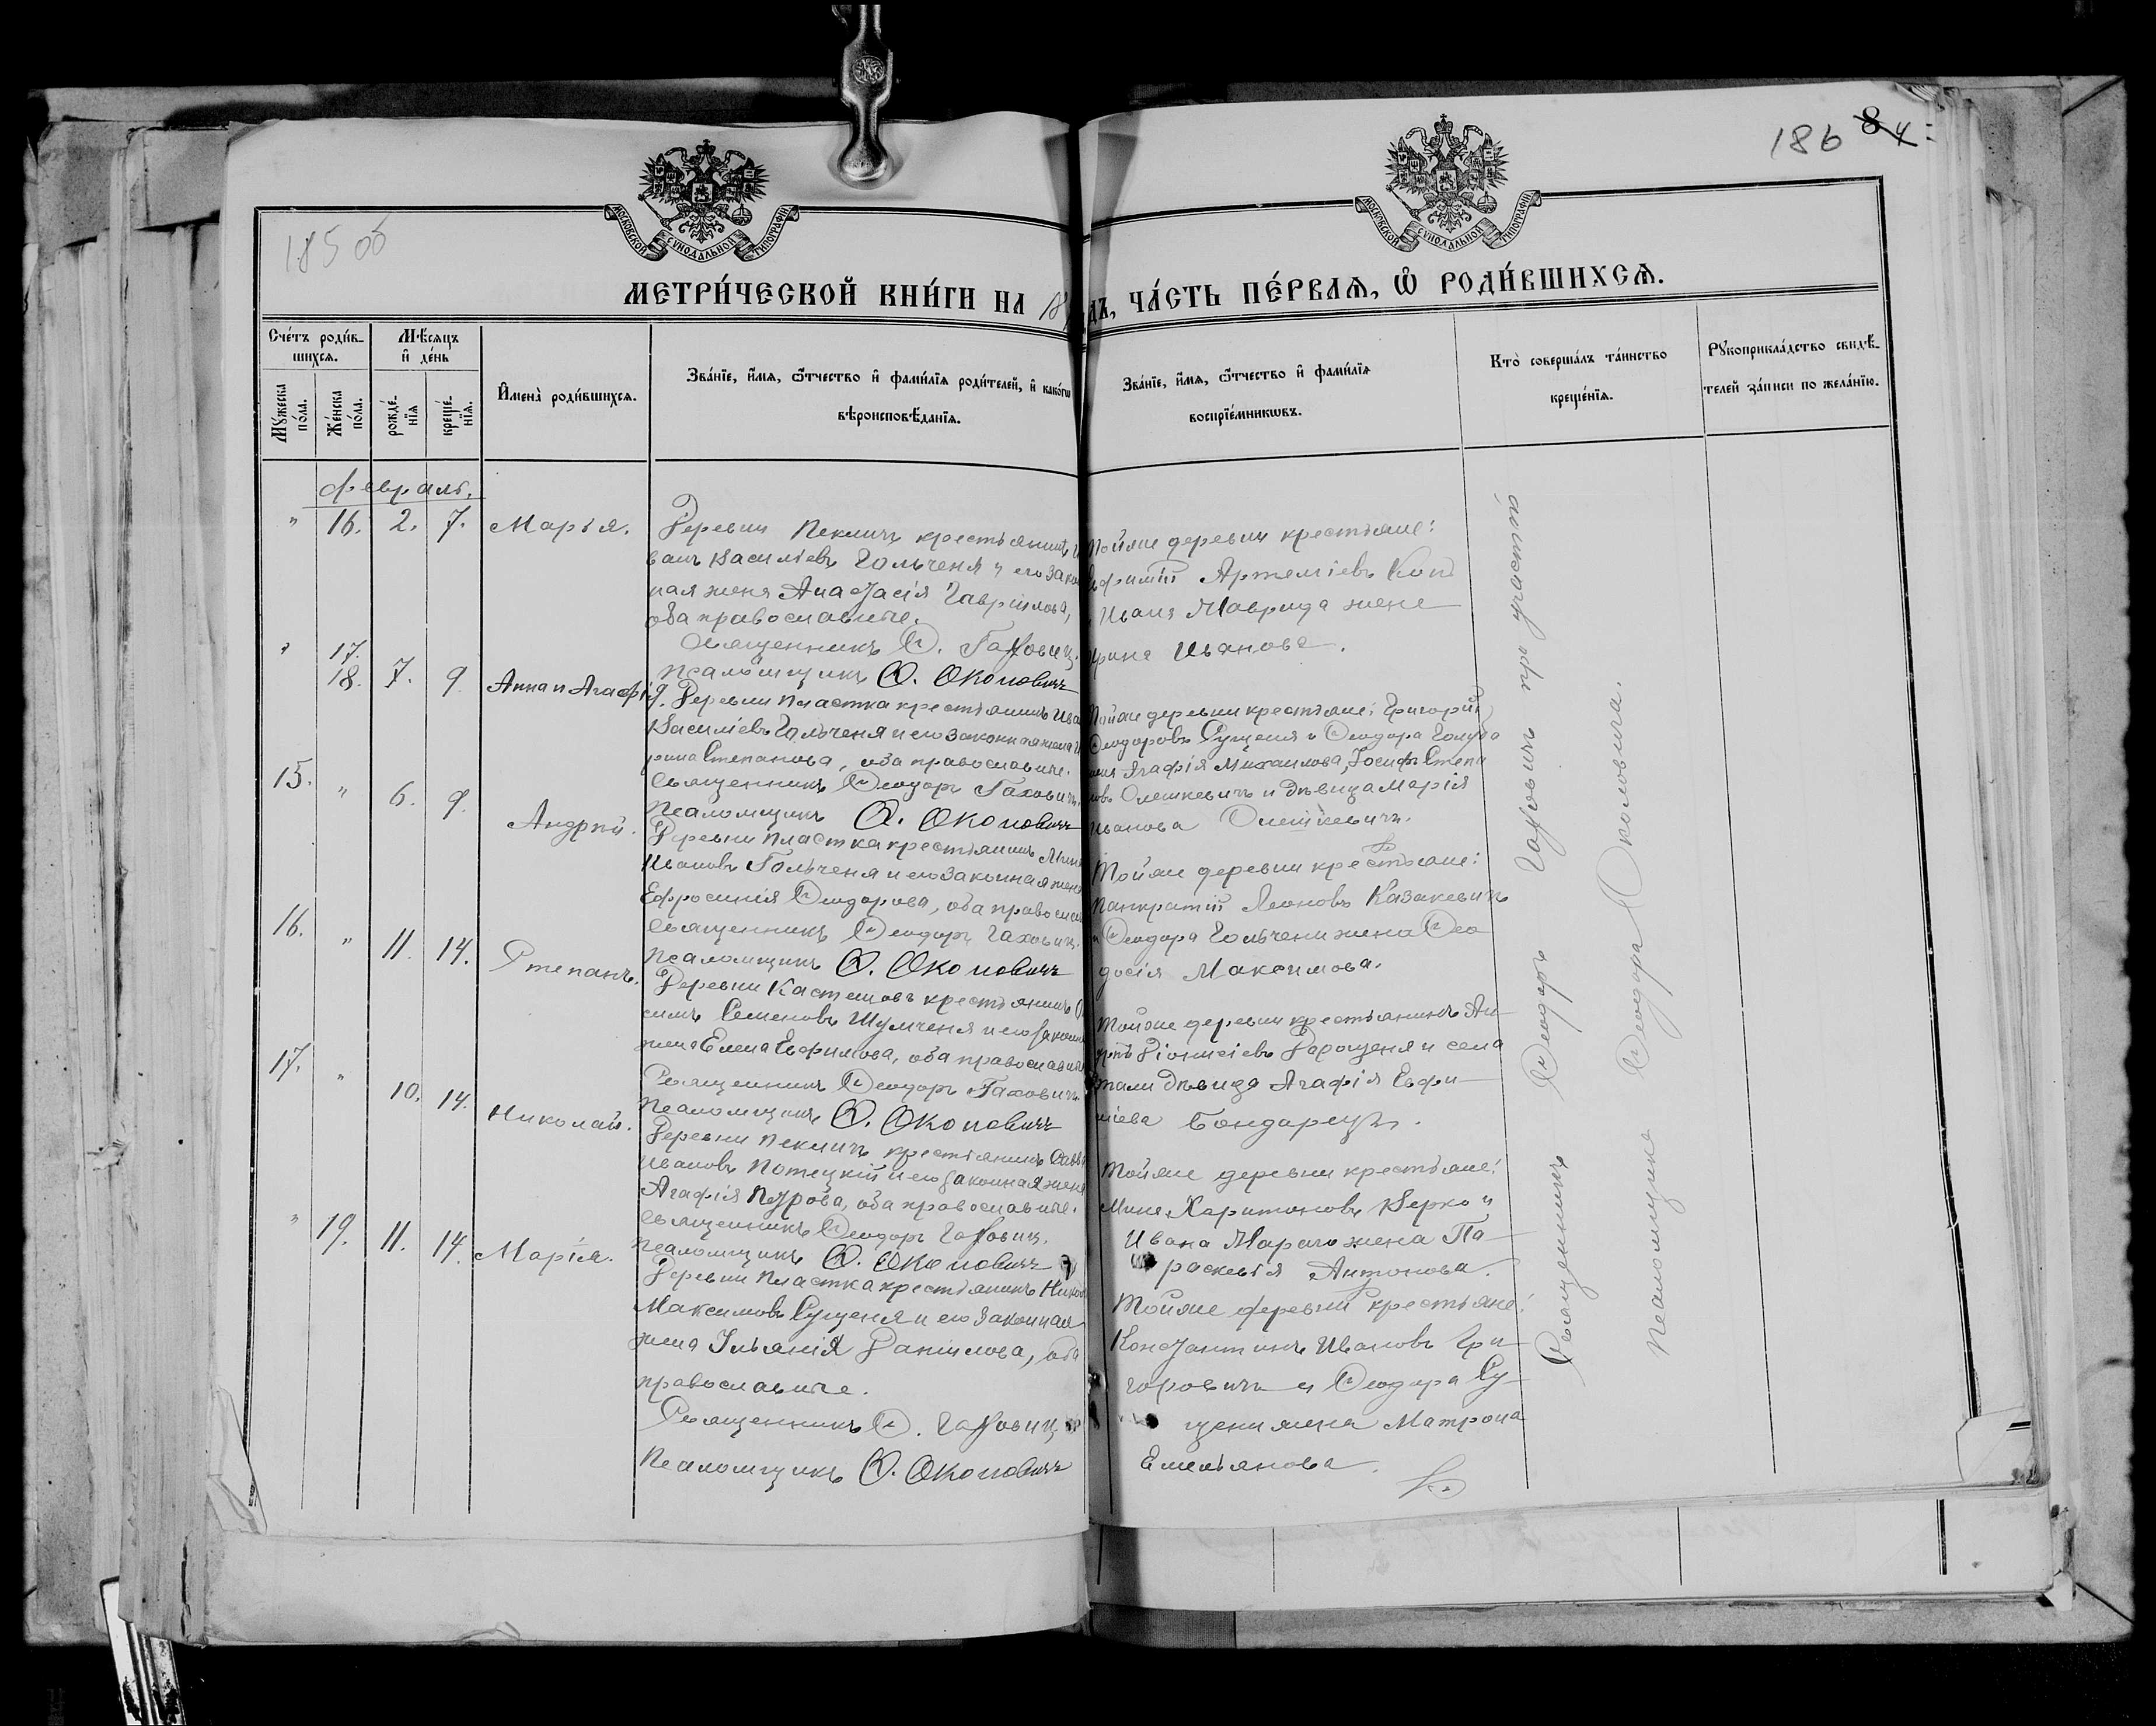 185 об
186 84
МОСКОВСКОЙ СѴНОДАЛЬНОЙ ТИПОГРАФІИ
МОСКОВСКОЙ СѴНОДАЛЬНОЙ ТИПОГРАФІИ
МЕТРИ́ЧЕСКОЙ КНИ́ГИ НА 18
ДЪ, ЧА́СТЬ ПЕ́РВАѦ, Ѽ РОДИ́ВШИХСѦ.
Сче́тъ роди́в-
шихсѧ.
Мꙋ́жеска по́ла.
Же́нска по́ла.
Мѣ́сѧцъ
и҆ де́нь
рожде́-
нїѧ
креще́-
нїѧ.
И҆мена̀ роди́вшихсѧ.
Зва́нїе, и҆́мѧ, ѻ҆́тчество и҆ фами́лїѧ роди́телей, и҆ како́гѡ
вѣроисповѣ́данїѧ.
Зва́нїе, и҆́мѧ, ѻ҆́тчество и҆ фами́лїѧ
воспрїе́мникѡвъ.
Кто̀ соверша́лъ та́инство
креще́нїѧ.
Рꙋкоприкла́дство свидѣ́-
телей за́писи по жела́нїю.
Февраль.
" 16. 2. 7. Марія.
Деревни Пекличъ крестьянинъ И
ванъ Васильевъ Гольченя и его закон
ная жена Анастасія Гавріилова,
оба православные.
Священникъ Ѳ. Гахович.
Псаломщикъ Ѳ. Околовичъ
Тойже деревни крестьяне:
Артеміевъ
Ивана жена
Ирина Иванова.
" 17.
18. 7. 9. Анна и Агафія.
Деревни Пластка крестьянинъ Ива
Васильевъ Гольченя и его законная жена И
рина Степанова, оба православные.
Священникъ Ѳеодоръ Гаховичъ.
Псаломщикъ Ѳ. Околовичъ
Тойже деревни крестьяне: Григорій
Ѳеодоровъ Сущеня и Ѳеодора
жена Агафія Михаилова, Іосифъ Степа
новъ Олешкевичъ и дѣвица Марія
Иванова Олешкевичъ.
15. " 6. 9. Андрей.
Деревни Пластка крестьянинъ
Ивановъ Гольченя и его законная жена
Ефросинія Ѳеодорова, оба православ
Священникъ Ѳеодоръ Гахович.
Псаломщикъ Ѳ. Околовичъ
Тойже деревни крестьяне:
Панкратій Леоновъ Казакевичъ
и Ѳеодора Гольчени жена Ѳео
досія Максимова.
16. " 11. 14. Степанъ.
Деревни крестьянинъ
симъ Семеновъ Шульченя и его законн
жена Елена Евфимова, оба православн
Священникъ Ѳеодоръ Гаховичъ.
Псаломщикъ Ѳ. Околовичъ
Тойже деревни крестьянинъ Ан-
дрей Діонисіевъ и села
дѣвица Агафія Евфи-
міева Бондарецъ.
17. " 10. 14. Николай.
Деревни Пекличъ крестьянинъ Савва
Ивановъ Потецкій и его законная жена
Агафія Петрова, оба православные.
Священникъ Ѳеодоръ Гахович.
Псаломщикъ Ѳ. Околовичъ
Тойже деревни крестьяне:
Мина Харитоновъ Верко и
Ивана жена Па-
раскевія Антонова.
" 19. 11. 14. Марія.
Деревни Пластка крестьянинъ Никол
Максимовъ Сущеня и его законная
жена Ульянія Даніилова, оба
православные.
Священникъ Ѳ. Гахович
Псаломщикъ Ѳ. Околовичъ
Тойже деревни крестьяне:
Константинъ Ивановъ Гри-
горовичъ и Ѳеодора Су-
щени жена Матрона
Емельянова.
Священникъ Ѳеодоръ Гаховичъ при участіи
Псаломщика Ѳеодора Околовича.